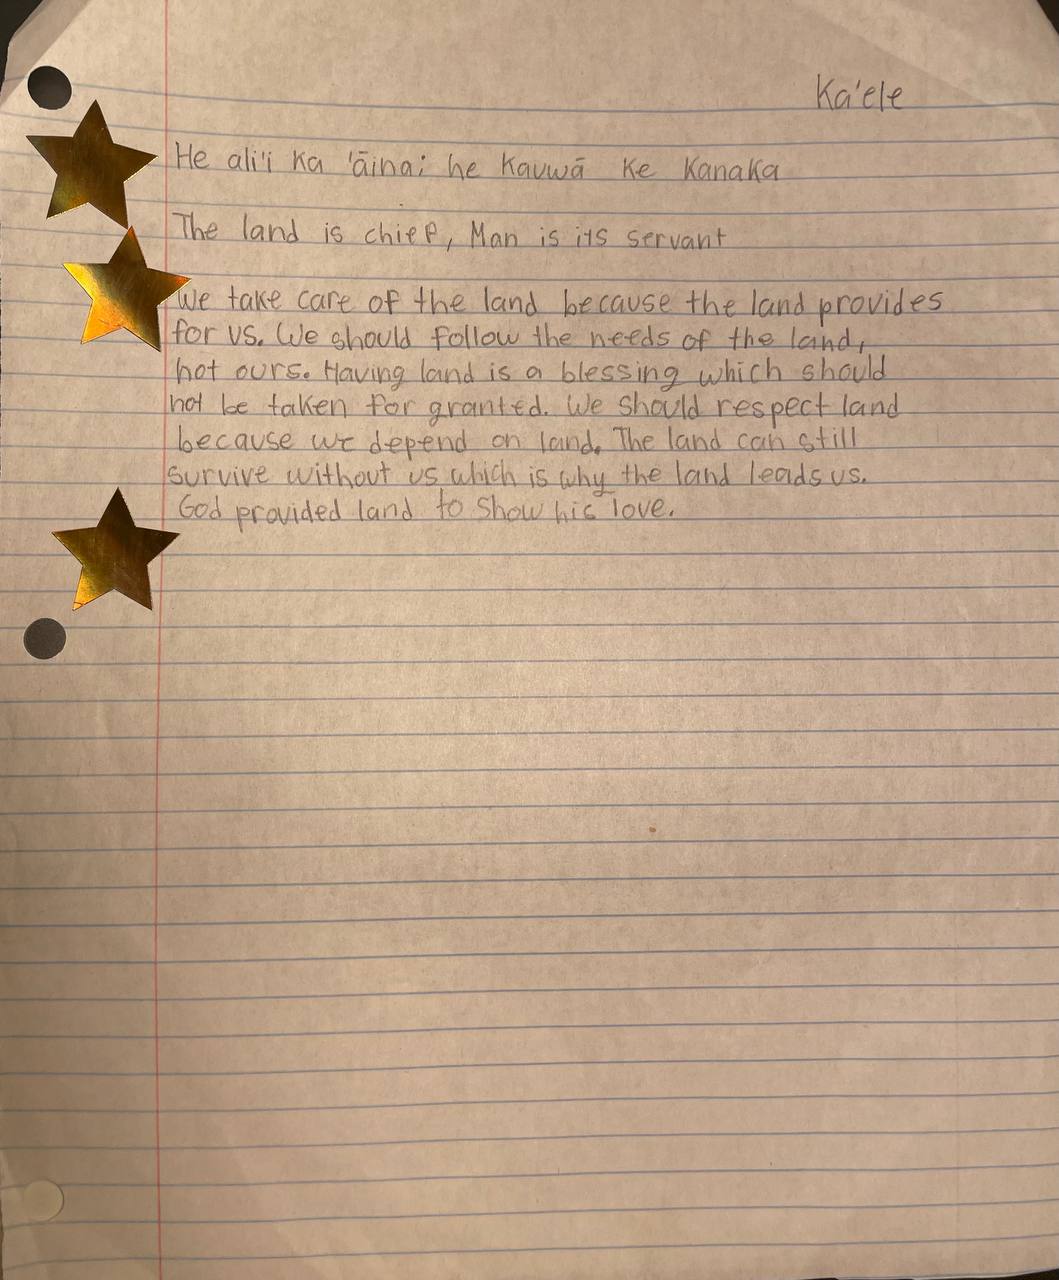 Ka'ele
He ali'i ka 'āina; he kauwā ke kanaka
The land is chief, Man is its servant
We take care of the land because the land provides
for us. We should follow the needs of the land,
not ours. Having land is a blessing which should
not be taken for granted. We should respect land
because we depend on land. The land can still
survive without us which is why the land leads us.
God provided land to show his love.